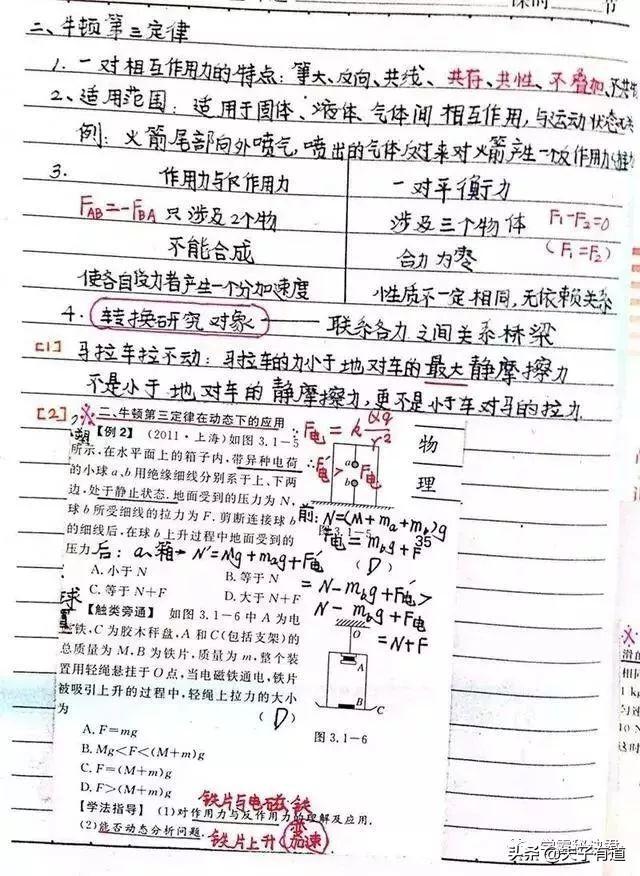 课时 节
二、牛顿第三定律
1. 一对相互作用力的特点: 等大、反向、共线、共存、共性、不叠加、
2、适用范围: 适用于固体、液体、气体间相互作用,与运动状态
例: 火箭尾部向外喷气,喷出的气体反过来对火箭产生一个反作用力
3. 作用力与反作用力 一对平衡力
FAB=-FBA 只涉及2个物 涉及三个物体 F₁-F₂=0
不能合成 合力为零 (F₁=F₂)
使各自受力者产生一个分加速度 小性质不一定相同,无依赖关系
4. 转换研究对象 —— 联系各力之间关系桥梁
[1] 马拉车拉不动: 马拉车的力小于地对车的最大静摩擦力
不是小于地对车的静摩擦力,更不是小于车对马的拉力
[2] 二、牛顿第三定律在动态下的应用 ∵F电=kQq/r²
【例2】 (2011·上海)如图3.1-5
所示,在水平面上的箱子内,带异种电荷 ∴F电'>F电
的小球a、b用绝缘细线分别系于上、下两
边,处于静止状态.地面受到的压力为N,
球b所受细线的拉力为F.剪断连接球b 前: N=(M+ma+mb)g
的细线后,在球b上升过程中地面受到的 图3.1-5
F电=mbg+F
压力 后: a、箱→ N'=Mg+mag+F电' (D)
A. 小于N B. 等于N
C. 等于N+F D. 大于N+F
=N-mbg+F电'>
N-mbg+F电
=N+F
【触类旁通】 如图3.1-6中A为电
铁,C为胶木秤盘,A和C(包括支架)的
总质量为M,B为铁片,质量为m,整个装
置用轻绳悬挂于O点,当电磁铁通电,铁片
被吸引上升的过程中,轻绳上拉力的大小
为 (D)
A. F=mg
B. Mg<F<(M+m)g
C. F=(M+m)g
D. F>(M+m)g
物
理
a
b
O
A
B
C
图3.1-6
铁片与电磁铁
【学法指导】 (1)对作用力与反作用力的理解及应用.
(2)能否动态分析问题.
铁片上升 加速
头条@夫子有道